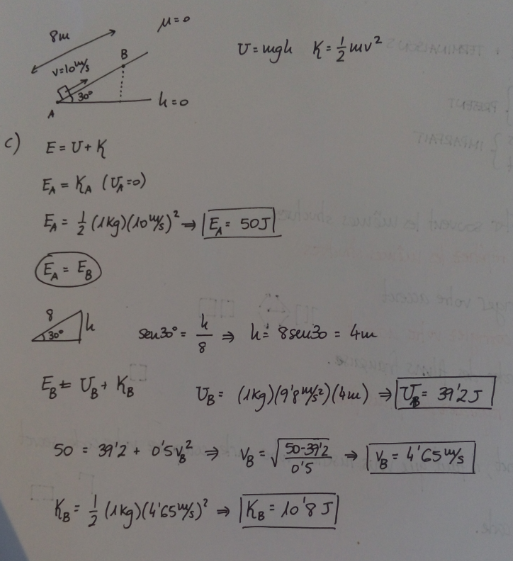 8m
μ=0
v=10m/s
B
30°
A
h=0
U=mgh K=½mv²
c) E=U+K
E_A=K_A (U_A=0)
E_A=½(1Kg)(10m/s)² ⇒ E_A=50J
E_A=E_B
8
30°
h
sen30°=h/8 ⇒ h=8sen30=4m
E_B=U_B+K_B
U_B=(1Kg)(9'8m/s²)(4m) ⇒ U_B=39'2J
50=39'2+0'5v_B² ⇒ v_B=√((50-39'2)/0'5) ⇒ v_B=4'65m/s
K_B=½(1Kg)(4'65m/s)² ⇒ K_B=10'8J